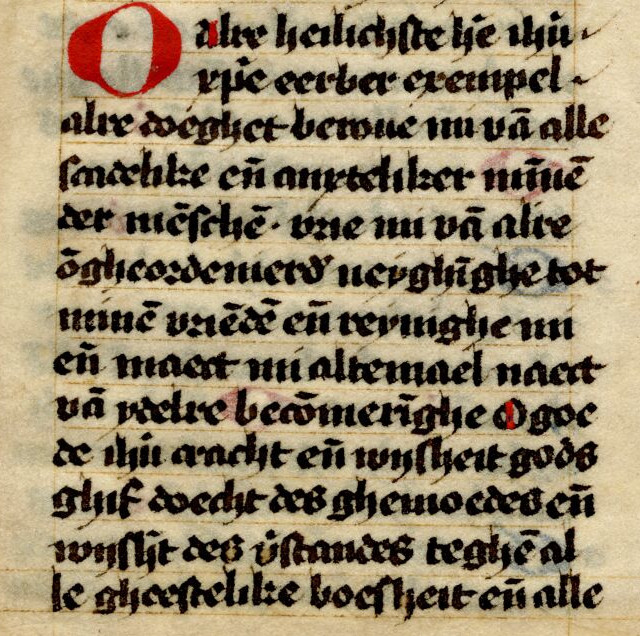 O alre heilichste hē ihū
xpē eerber exempel
alre doeghet beroue mi vā alle
scadelike eñ aurteliker mīnē
der mēschē. vrie mi vā alre
ōgheordenierd' neyghīghe tot
minē vriēdē eñ reynighe mi
eñ maect mi altemael naect
vā ydelre becōmerīghe O goe
de ihū cracht eñ wijsheit gods
ghif doecht des ghemoedes eñ
wijsh't des v̄standes teghē al
le gheestelike boesheit eñ alle